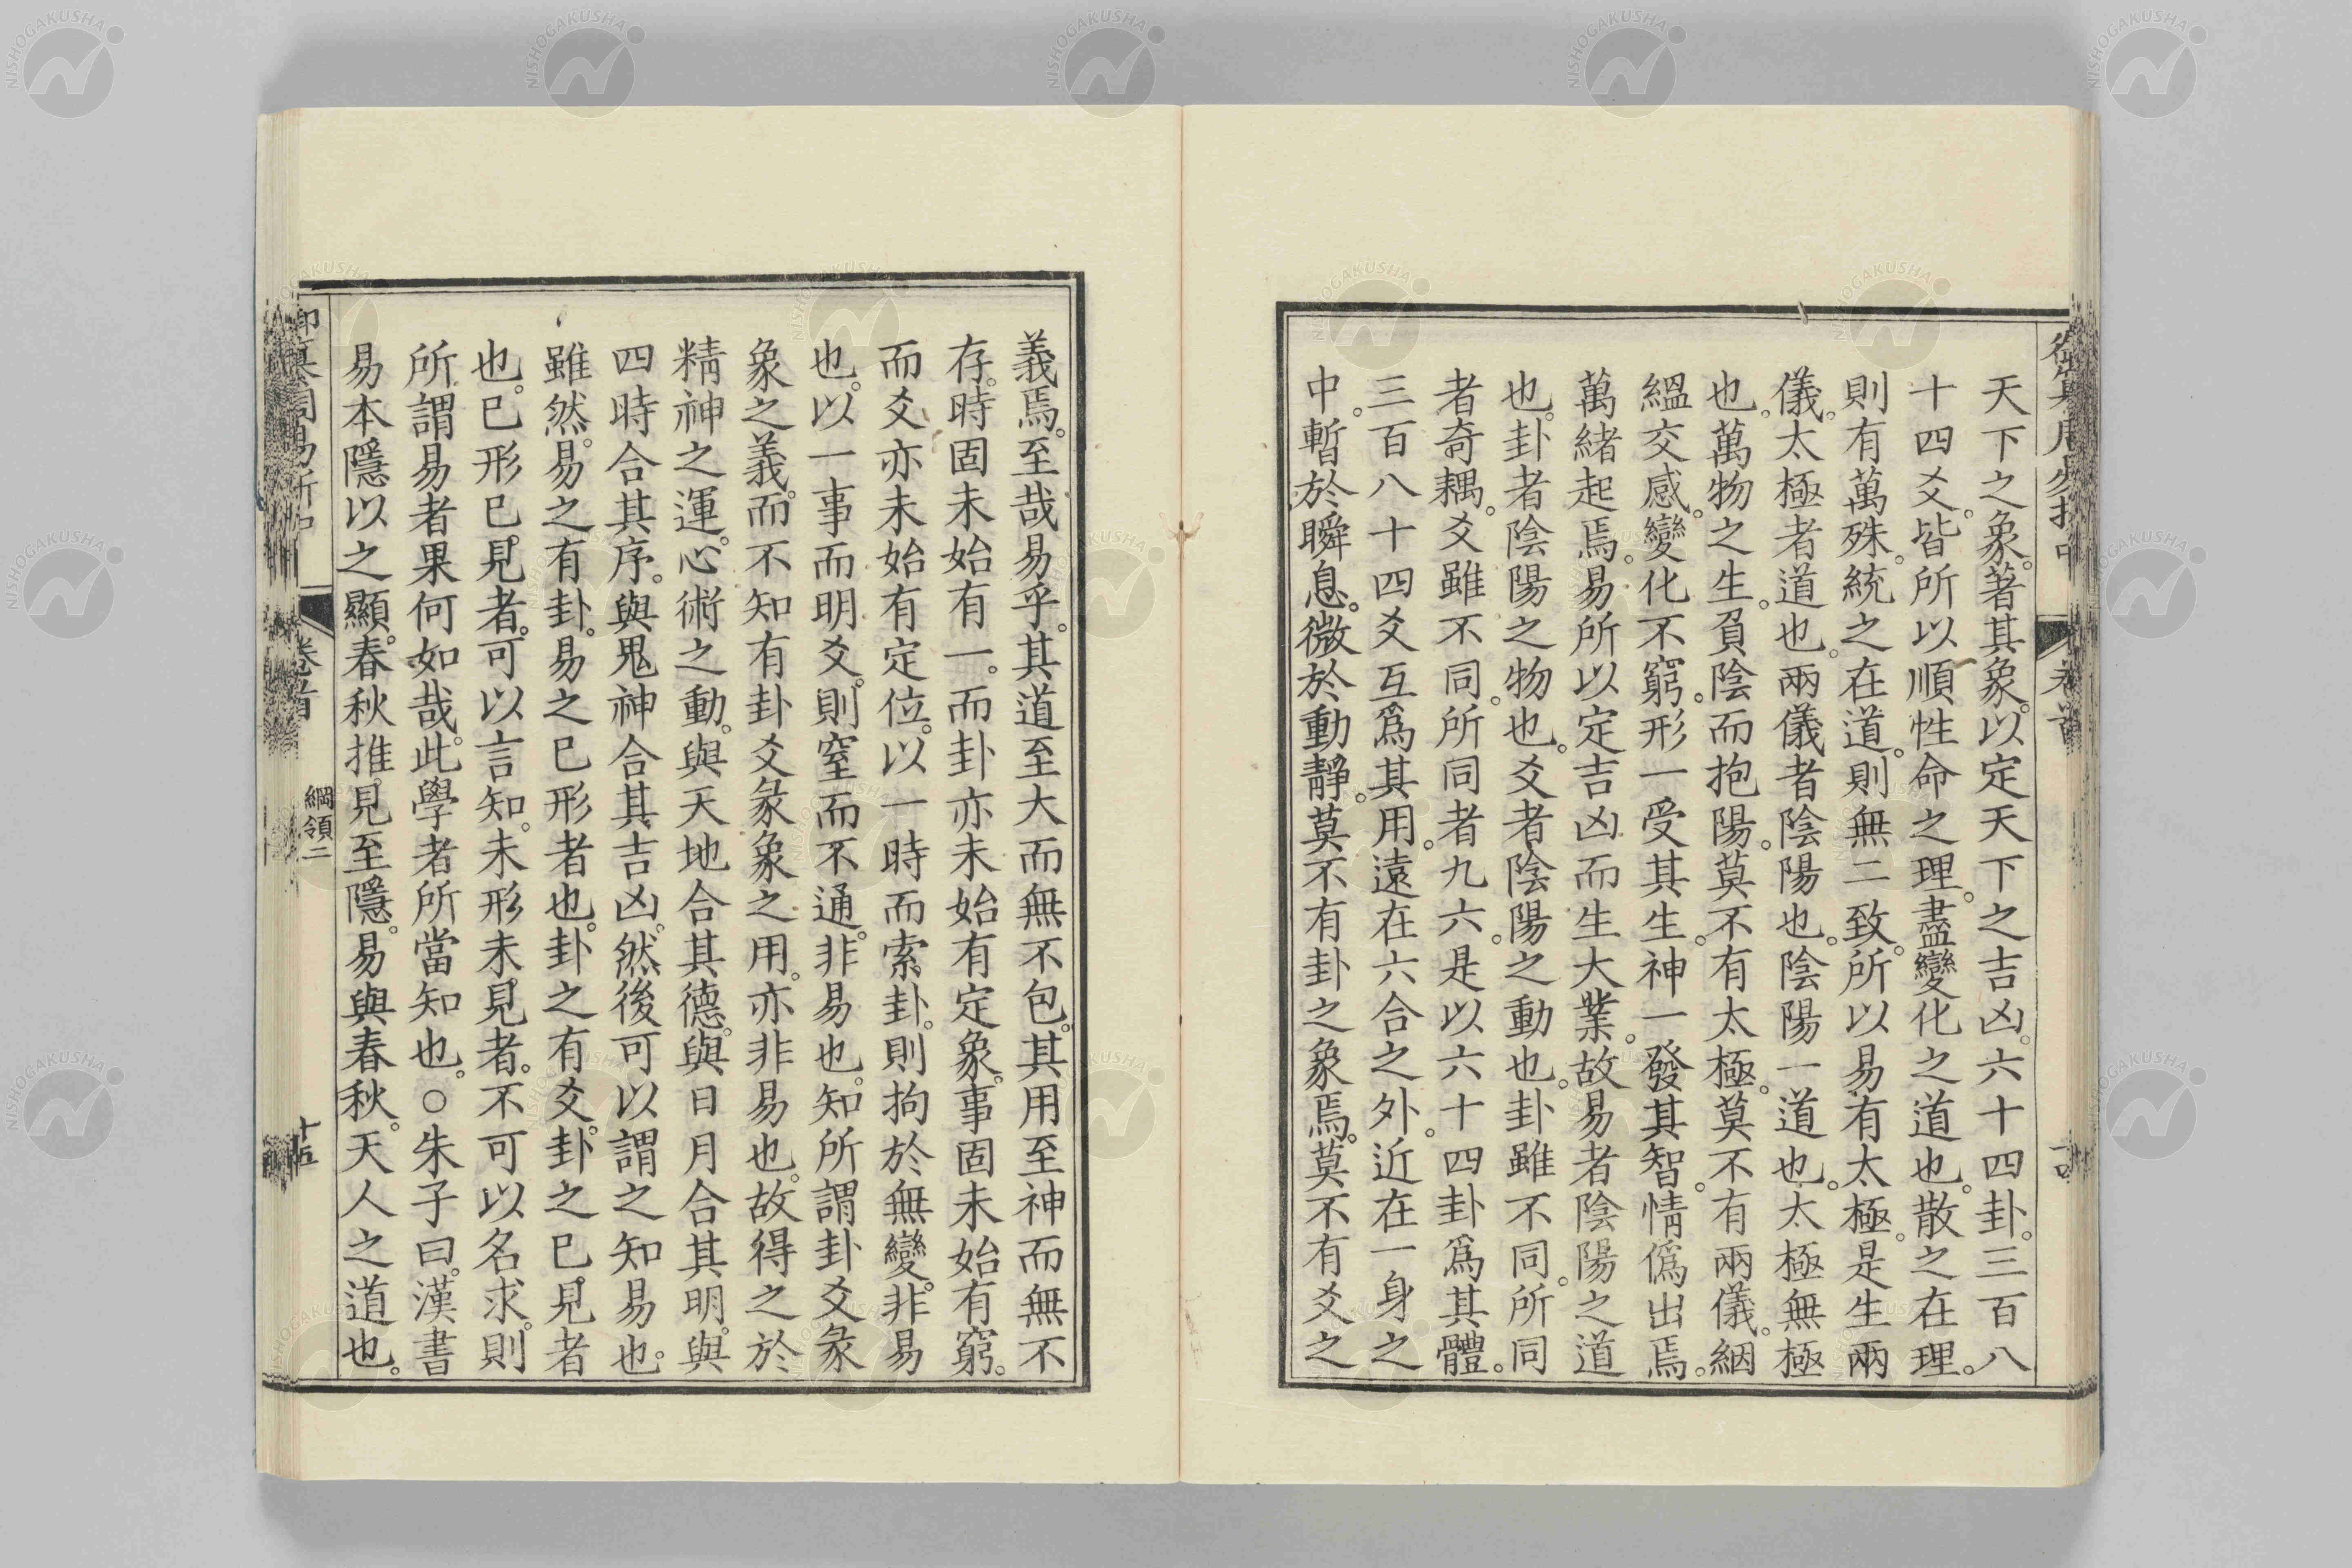 天下之象。著其象。以定天下之吉凶。六十四卦。三百八
十四爻。皆所以順性命之理。盡變化之道也。散之在理。
則有萬殊。統之在道。則無二致。所以易有太極。是生兩
儀。太極者道也。兩儀者陰陽也。陰陽一道也。太極無極
也。萬物之生。負陰而抱陽。莫不有太極。莫不有兩儀。絪
縕交感。變化不窮。形一受其生。神一發其智。情僞出焉。
萬緒起焉。易所以定吉凶而生大業。故易者陰陽之道
也。卦者陰陽之物也。爻者陰陽之動也。卦雖不同。所同
者奇耦。爻雖不同。所同者九六。是以六十四卦爲其體。
三百八十四爻互爲其用。遠在六合之外。近在一身之
中。暫於瞬息。微於動靜。莫不有卦之象焉。莫不有爻之
義焉。至哉易乎。其道至大而無不包。其用至神而無不
存。時固未始有一。而卦亦未始有定象。事固未始有窮。
而爻亦未始有定位。以一時而索卦。則拘於無變。非易
也。以一事而明爻。則窒而不通。非易也。知所謂卦爻彖
象之義。而不知有卦爻彖象之用。亦非易也。故得之於
精神之運。心術之動。與天地合其德。與日月合其明。與
四時合其序。與鬼神合其吉凶。然後可以謂之知易也。
雖然。易之有卦。易之已形者也。卦之有爻。卦之已見者
也。已形已見者。可以言知。未形未見者。不可以名求。則
所謂易者果何如哉。此學者所當知也。○朱子曰。漢書
易本隱以之顯。春秋推見至隱。易與春秋。天人之道也。
卷首
綱領二
十五
NISHOGAKUSHA